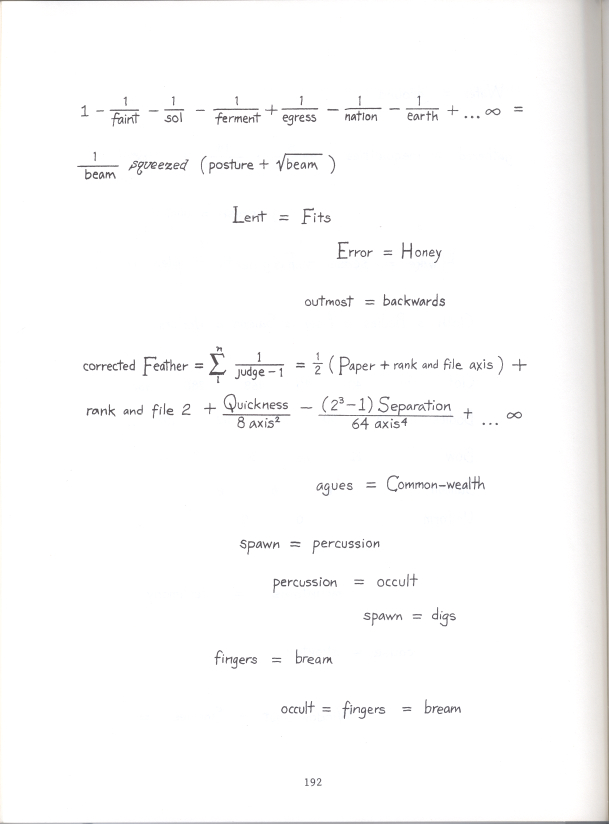 1 - 1/faint - 1/sol - 1/ferment + 1/egress - 1/nation - 1/earth + ... ∞ =
1/beam squeezed (posture + √beam )
Lent = Fits
Error = Honey
outmost = backwards
corrected Feather = n∑1 1/judge-1 = 1/2 (Paper + rank and file axis) +
rank and file 2 + Quickness/8 axis² - (2³-1) Separation/64 axis⁴ + ... ∞
agues = Common-wealth
spawn = percussion
percussion = occult
spawn = digs
fingers = bream
occult = fingers = bream
192